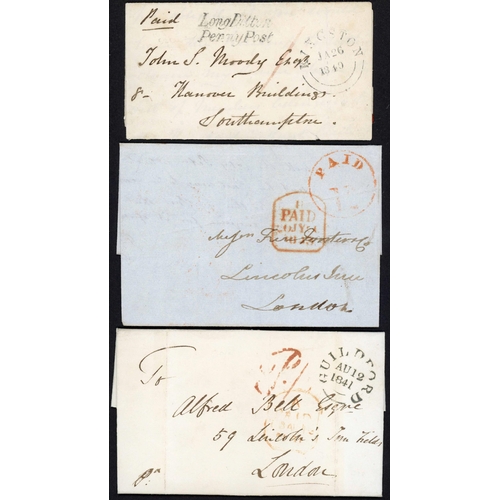 Paid
Long Ditton
Penny Post
KINGSTON
JA 26
1849
John S. Moody Esqr
8 Hanover Buildings
Southampton.
PAID
1
PAID
Messrs
Lincolns Inn
London
GUILDFORD
AU 12
1841
To
Alfred Bell Esqre
59 Lincoln's Inn Fields
London
Pd